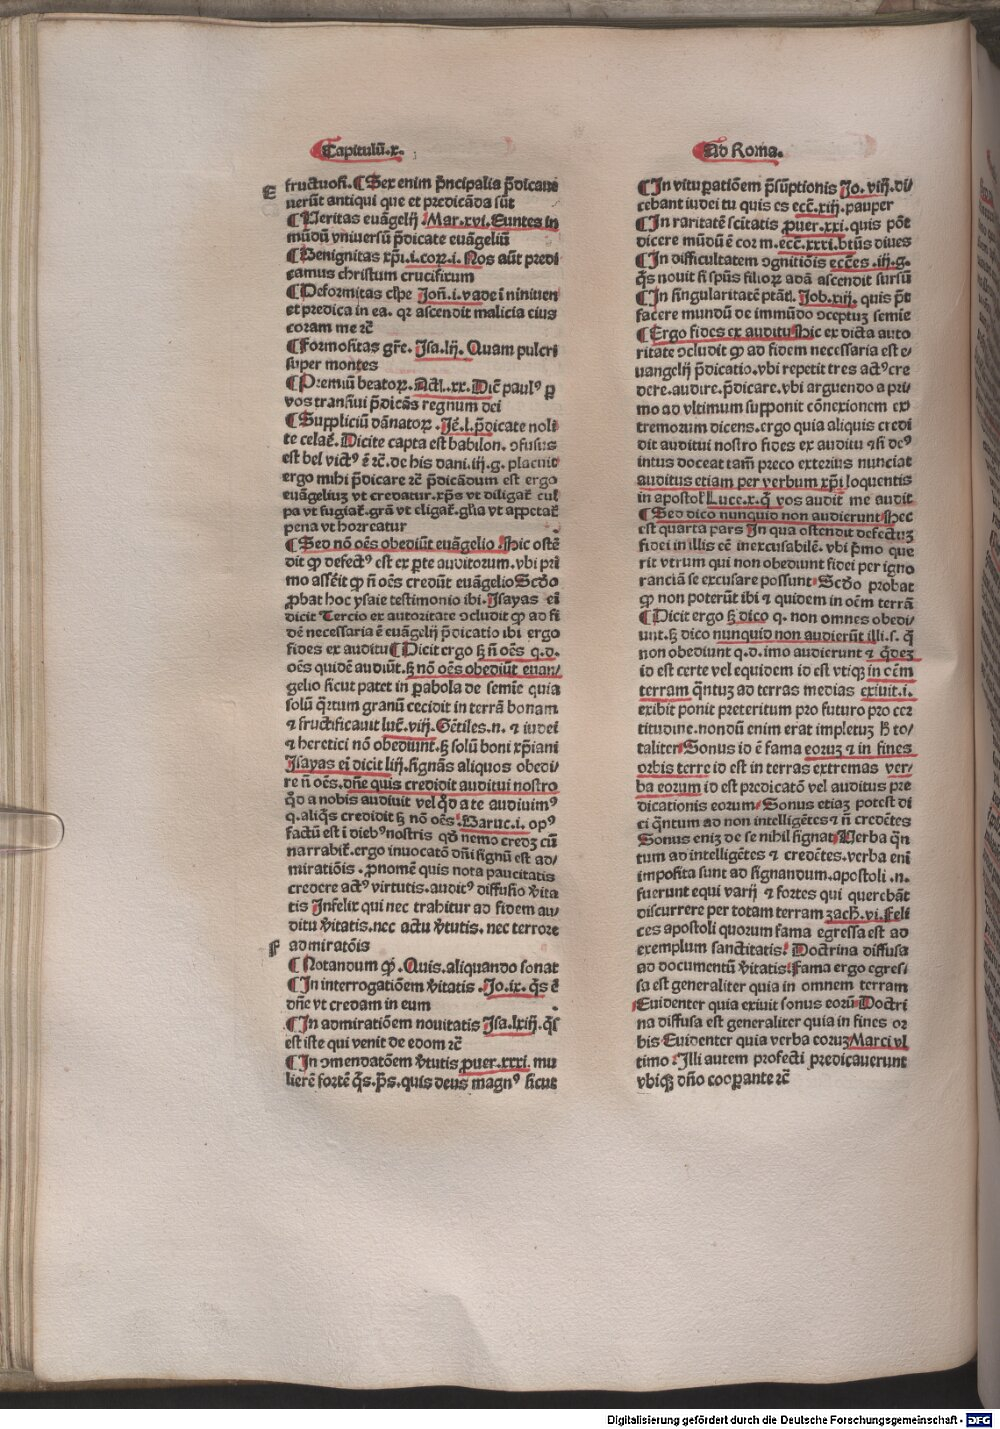 Capitulū.x.
fructuosi. ¶ Sex enim p̄ncipalia p̄dicaue
E
uerūt antiqui que et predicāda sūt
¶ Veritas euāgelij .Mar.xvi. Euntes in
mūdū vniuersū p̄dicate euāgeliū
¶ Benignitas xp̄i.i.corꝝ.i. Nos aūt predi
camus christum crucifixum
¶ Deformitas Joñ.i.vade ī niniuen
et predica in ea. qꝛ ascendit malicia eius
coram me ꝛc̄
¶ Formositas gr̄e. Isa.lij. Quam pulcri
super montes
¶ Premiū beatoꝝ. Act.xx. Dic̄ paulꝰ ꝑ
vos transiui p̄dicās regnum dei
¶ Suppliciū dānatoꝝ .Je.l.p̄dicate noli
te celaē. Dicite capta est babilon. ꝯfusus
est bel victꝰ ē ꝛc̄.de his dani.iij.g. placuit
ergo mihi p̄dicare ꝛc̄ p̄dicādum est ergo
euāgeliuꝫ vt credatur.xp̄s vt diligat̄ cul
pa vt fugiat̄.grā vt eligat̄.gl̄ia vt appetat̄
pena vt horreatur
¶ Sed nō oēs obediūt euāgelio .Hic ostē
dit ꝙ defectꝰ est ex ꝑte auditorum.vbi pri
mo asserit ꝙ ñ oēs credūt euāgelio Scd̄o
ꝓbat hoc ysaie testimonio ibi. Isayas ei
dicit Tercio ex autoritate ꝯcludit ꝙ ad fi
dē necessaria ē euāgelij p̄dicatio ibi ergo
fides ex auditu ¶ Dicit ergo ꝫ ñ oēs q.d.
oēs quidē audiūt.ꝫ nō oēs obediūt euan/
gelio sicut patet in ꝑabola de semīe quia
solū q̄rtum granū cecidit in terrā bonam
⁊ fructificauit luc̄.viij. Gētiles.n. ⁊ iudei
⁊ heretici nō obediunt.ꝫ solū boni xp̄iani
Isayas ei dicit liij.signās aliquos obedi/
re ñ oēs.dñe quis credidit auditui nostro
qd̄ a nobis audiuit vel qd̄ a te audiuimꝰ
q.aliqs credidit ꝫ nō oēs .Baruc.i. opꝰ
factū est ī diebꝰ nostris qd̄ nemo credꝫ cū
narrabit̄.ergo inuocatō dñi signū est ad/
mirationis .pronomē quis nota paucitatis
credere actꝰ virtutis.auditꝰ diffusio v̄ita
tis Infelix qui nec trahitur ad fidem au/
ditu v̄itatis.nec actu v̄tutis.nec terrore
F
admiratōis
¶ Notandum ꝙ .Quis.aliquando sonat
¶ In interrogatiōem v̄itatis .Jo.ix. q̄s ē
dñe vt credam in eum
¶ In admiratiōem nouitatis Isa.lxiij.q̄s
est iste qui venit de edom ꝛc̄
¶ In ꝯmendatōem v̄tutis puer.xxxi. mu
lierē fortē q̄s.p̄s.quis deus magnꝰ sicut
Ad Roma.
¶ In vituꝑatiōem p̄sūptionis Jo. viij.di/
cebant iudei tu quis es ecc̄.xiij.pauper
¶ In raritatē sc̄itatis ꝓuer.xxi.quis pōt
dicere mūdū ē cor m.ecc̄.xxxi.btūs diues
¶ In difficultatem ꝯgnitiōis ecc̄es .iij.g.
q̄s nouit si sp̄us filioꝝ adā ascendit sursū
¶ In singularitatē ptātl. Job.xiij. quis p̄t
facere mundū de immūdo ꝯceptuꝫ semie
¶ Ergo fides ex auditu Hic ex dicta auto
ritate ꝯcludit ꝙ ad fidem necessaria est e/
uangelij p̄dicatio.vbi repetit tres actꝰ cre
dere.audire.p̄dicare.vbi arguendo a pri/
mo ad vltimum supponit cōnexionem ex
tremorum dicens.ergo quia aliquis credi
dit auditui nostro fides ex auditu ⁊ si deꝰ
intus doceat tam̄ preco exterius nunciat
auditus etiam per verbum xp̄i loquentis
in apostol̄ Luce.x.q̄ vos audit me audit
¶ Sed dico nunquid non audierunt Hec
est quarta pars In qua ostendit defectuꝫ
fidei in illis eē inexcusabilē. vbi p̄mo que
rit vtrum qui non obediunt fidei per igno
ranciā se excusare possunt Scd̄o probat
ꝙ non poterūt ibi ⁊ quidem in oēm terrā
¶ Dicit ergo ꝫ dico q. non omnes obedi/
unt.ꝫ dico nunquid non audierūt illi.s. q̄
non obediunt q.d. imo audierunt ⁊ q̄deꝫ
id est certe vel equidem id est vtiqꝫ in oēm
terram q̄ntuꝫ ad terras medias exiuit.i.
exibit ponit preteritum pro futuro pro cer
titudine.nondū enim erat impletuꝫ ꝑ to/
taliter Sonus id ē fama eoruꝫ ⁊ in fines
orbis terre id est in terras extremas ver/
ba eorum id est predicatō vel auditus pre
dicationis eorum Sonus etiaꝫ potest di
ci q̄ntum ad non intelligētes ⁊ ñ credētes
Sonus enīꝫ de se nihil signat Verba q̄n
tum ad intelligētes ⁊ credētes.verba enī
imposita sunt ad signandum.apostoli .n.
fuerunt equi varij ⁊ fortes qui querebāt
discurrere per totam terram zach.vi. Feli
ces apostoli quorum fama egressa est ad
exemplum sanctitatis: Doctrina diffusa
ad documentū v̄itatis Fama ergo egres/
sa est generaliter quia in omnem terram
Euidenter quia exiuit sonus eorū Doctri
na diffusa est generaliter quia in fines or
bis Euidenter quia verba eoruꝫ Marci vl
timo Illi autem profecti predicauerunt
vbiqꝫ dño cooꝑante ꝛc̄
Digitalisierung gefördert durch die Deutsche Forschungsgemeinschaft - DFG